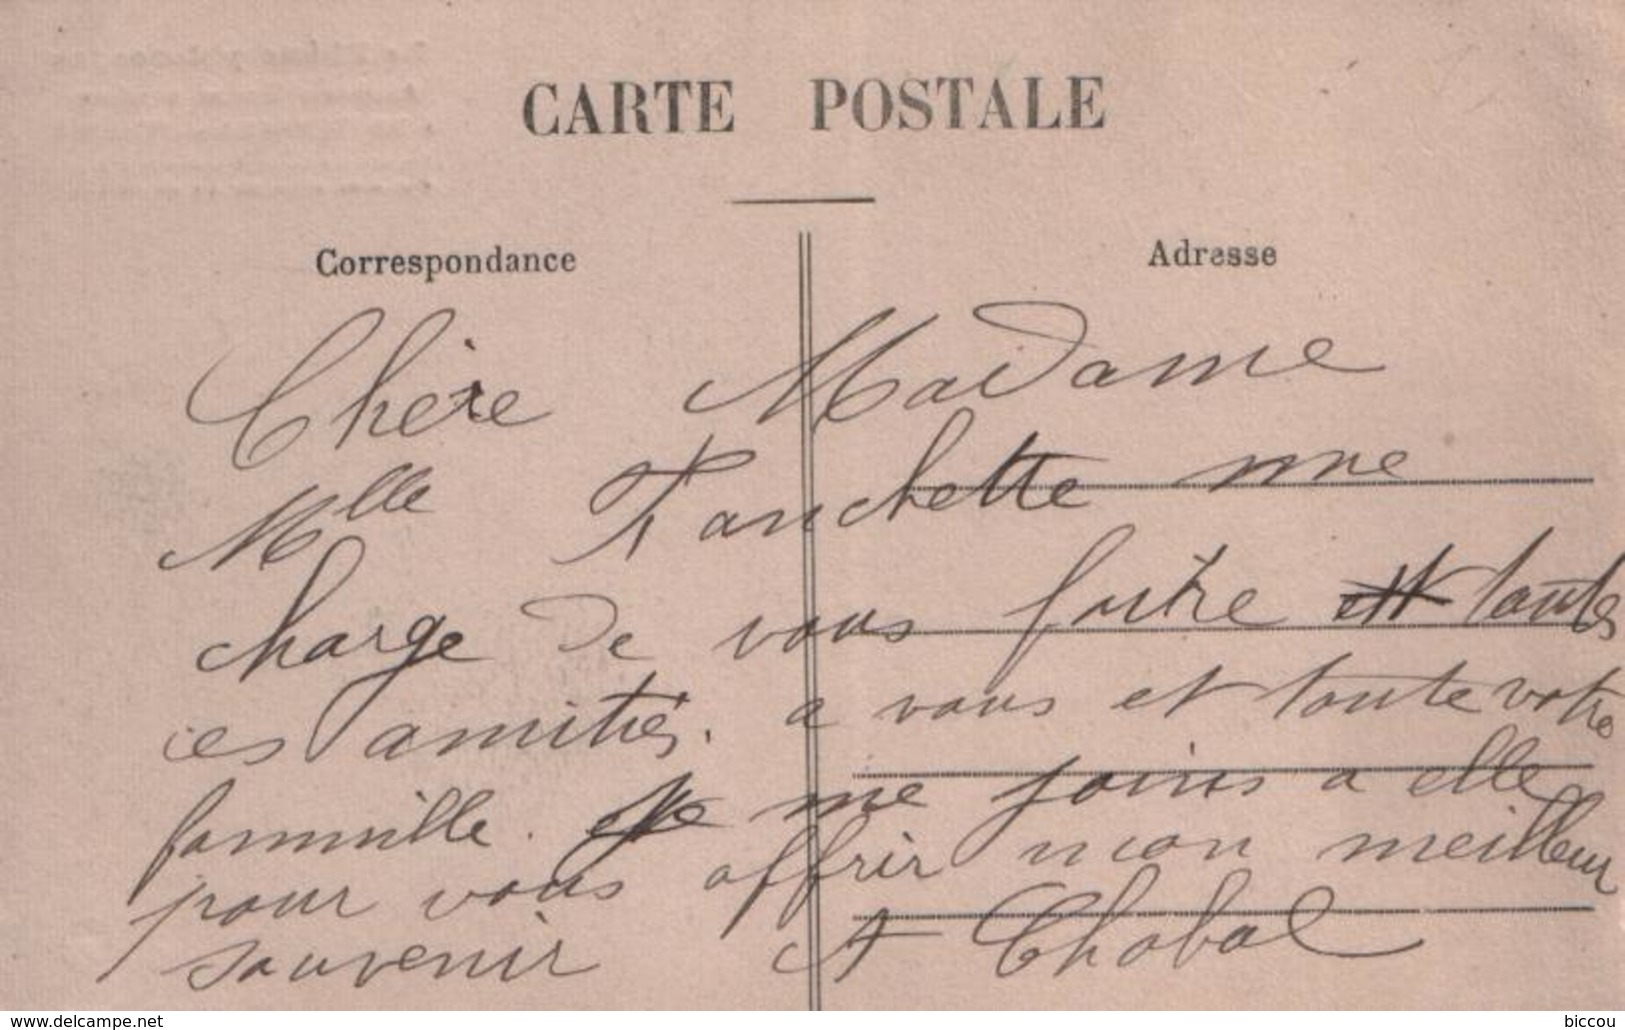 CARTE POSTALE
Correspondance
Adresse
Chère Madame
Mlle Fanchette me
charge de vous faire toutes
ces amitiés. a vous et toute votre
famille. Je me joins a elle
pour vous offrir mon meilleur
souvenir A Chabal
www.delcampe.net
biccou